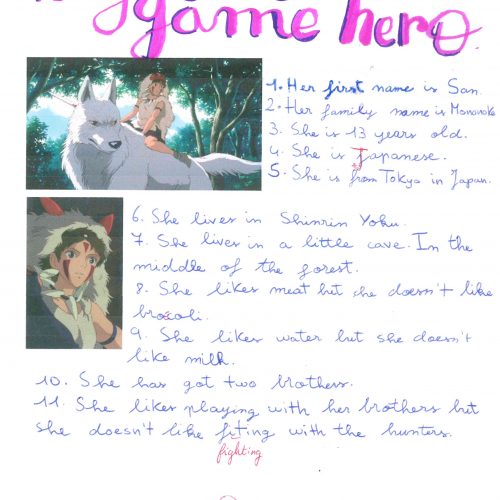 game hero.
1. Her first name is San.
2. Her family name is Mononoke
3. She is 13 years old.
4. She is Japanese.
5. She is from Tokyo in Japan.
6. She lives in Shinrin Yoku.
7. She lives in a little cave. In the
middle of the forest.
8. She likes meat but she doesn't like
brocoli.
9. She likes water but she doesn't
like milk.
10. She has got two brothers.
11. She likes playing with her brothers but
she doesn't like fiting with the hunters.
fighting